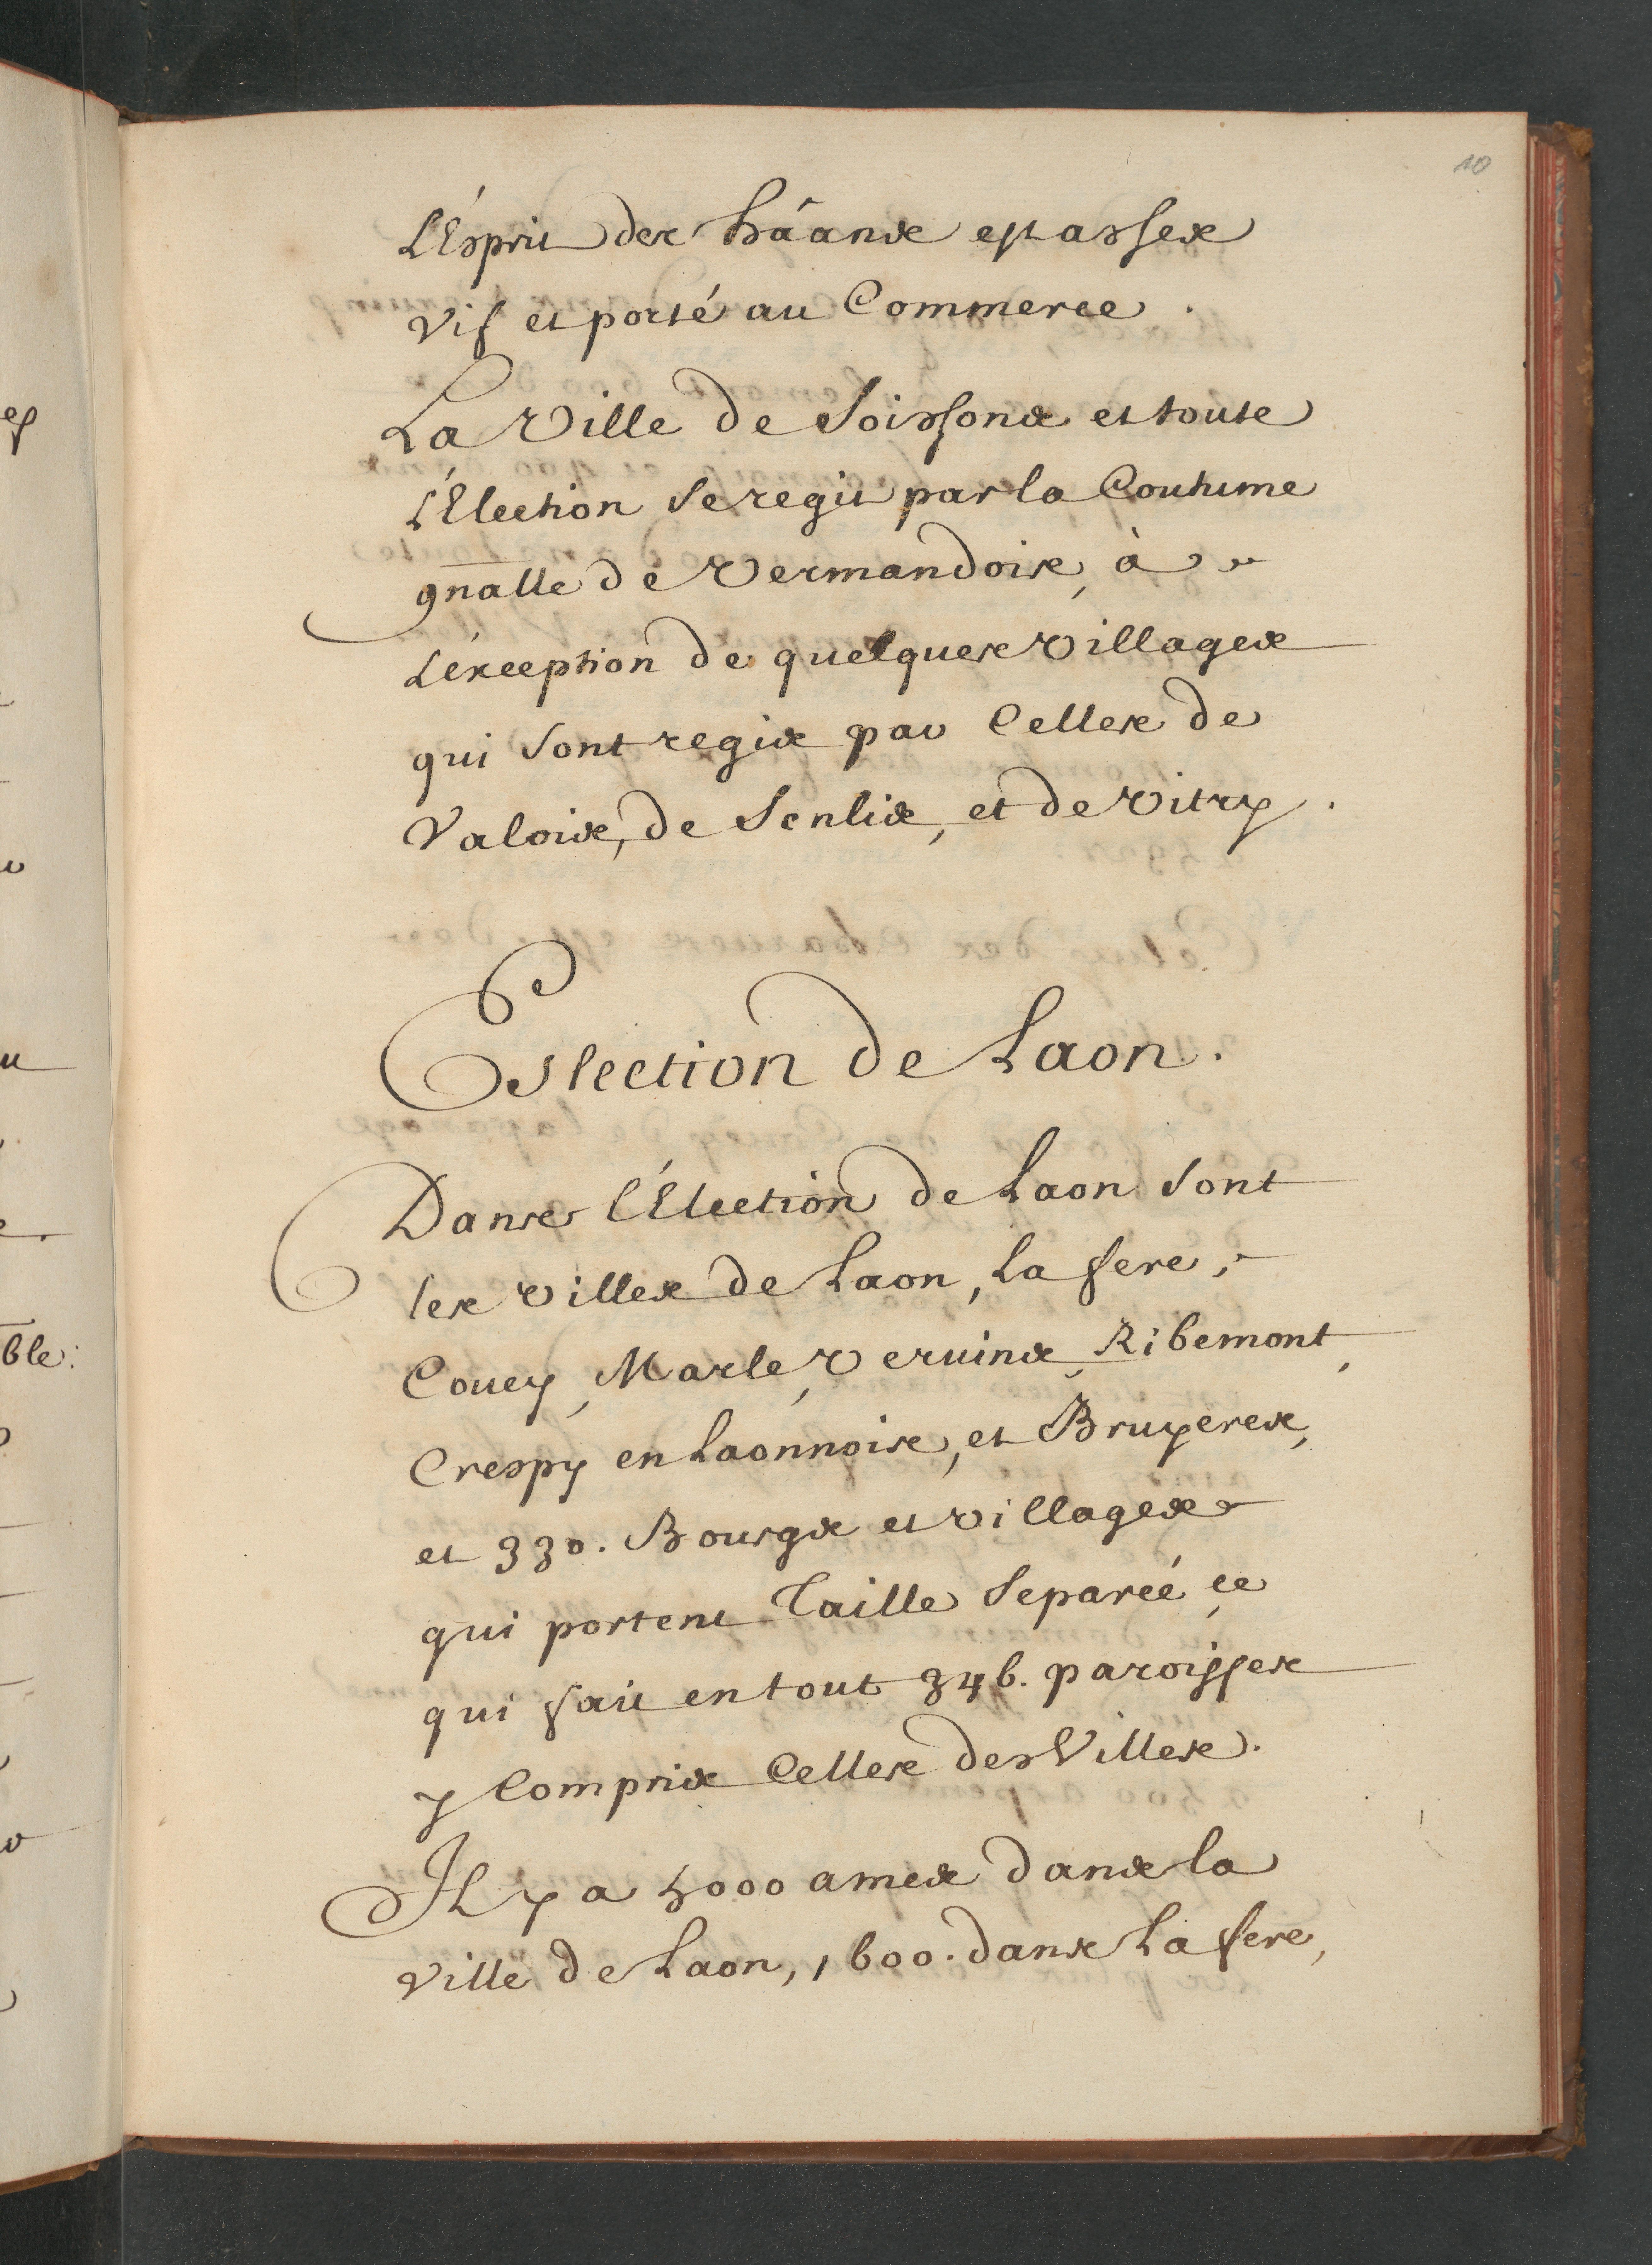 10
L'Esprit des hãans est assez
vif et porté au Commerce.
La Ville de Soissons et toute
L'Election se regit par la Coutume
gnalle de Vermandois, à
L'éxception de quelques Villages
qui sont regis par Celles de
Valois, de Senlis, et de Vitry.
Eslection de Laon.
Dans l'Election de Laon sont
les villes de Laon, La fere,
Coucy, Marle, Veruins, Ribemont,
Crespy en Laonnois, et Bruyeres,
et 330. Bourgs et villages
qui portent Taille Separéé, ce
qui fait en tout 346. paroisses
y Compris Celles des Villes.
Il y a 5000 ames dans la
ville de Laon, 1600. dans La fere,